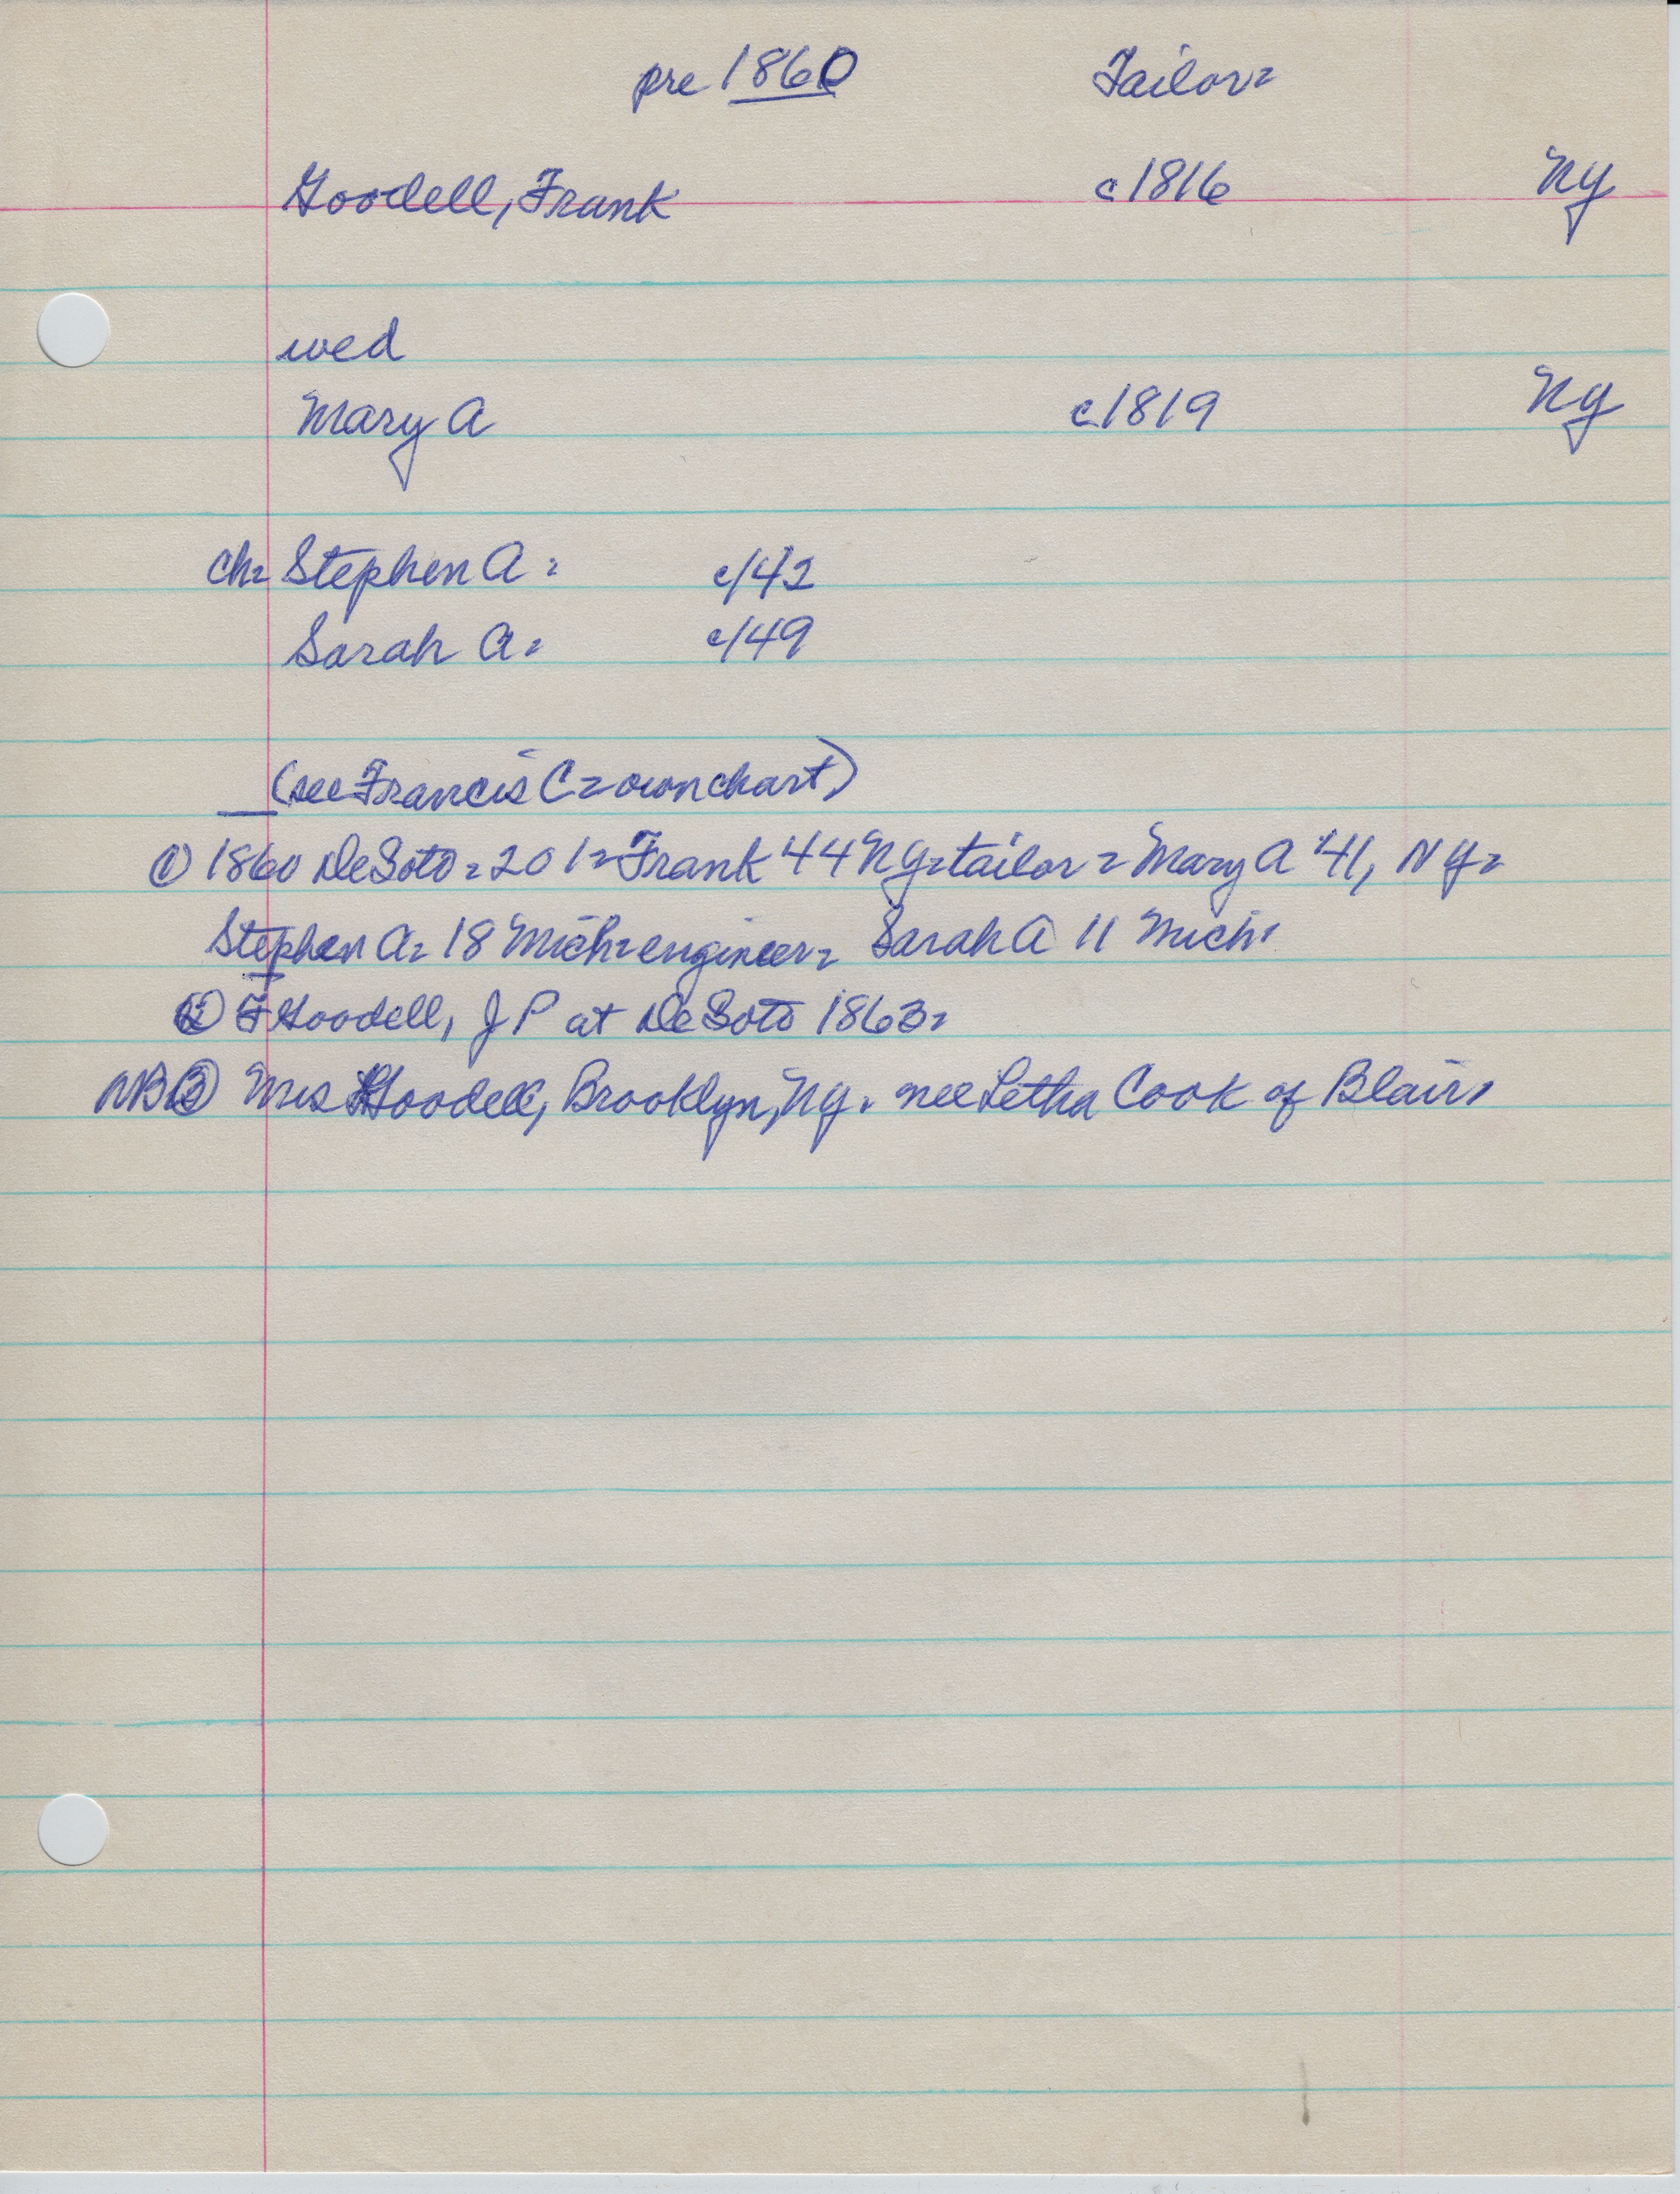 pre 1860 Tailor=
Goodell, Frank c1816 NY
wed
Mary A c1819 NY
ch= Stephen A= c/42
Sarah A= c/49
(see Francis C= own chart)
① 1860 DeSoto= 201= Frank 44 NY= tailor= Mary A 41, NY=
Stephen A= 18 Mich= engineer= Sarah A 11 Mich=
② F Goodell, JP at DeSoto 1863=
NB③ Mrs Goodell, Brooklyn, NY. nee Letha Cook of Blair=